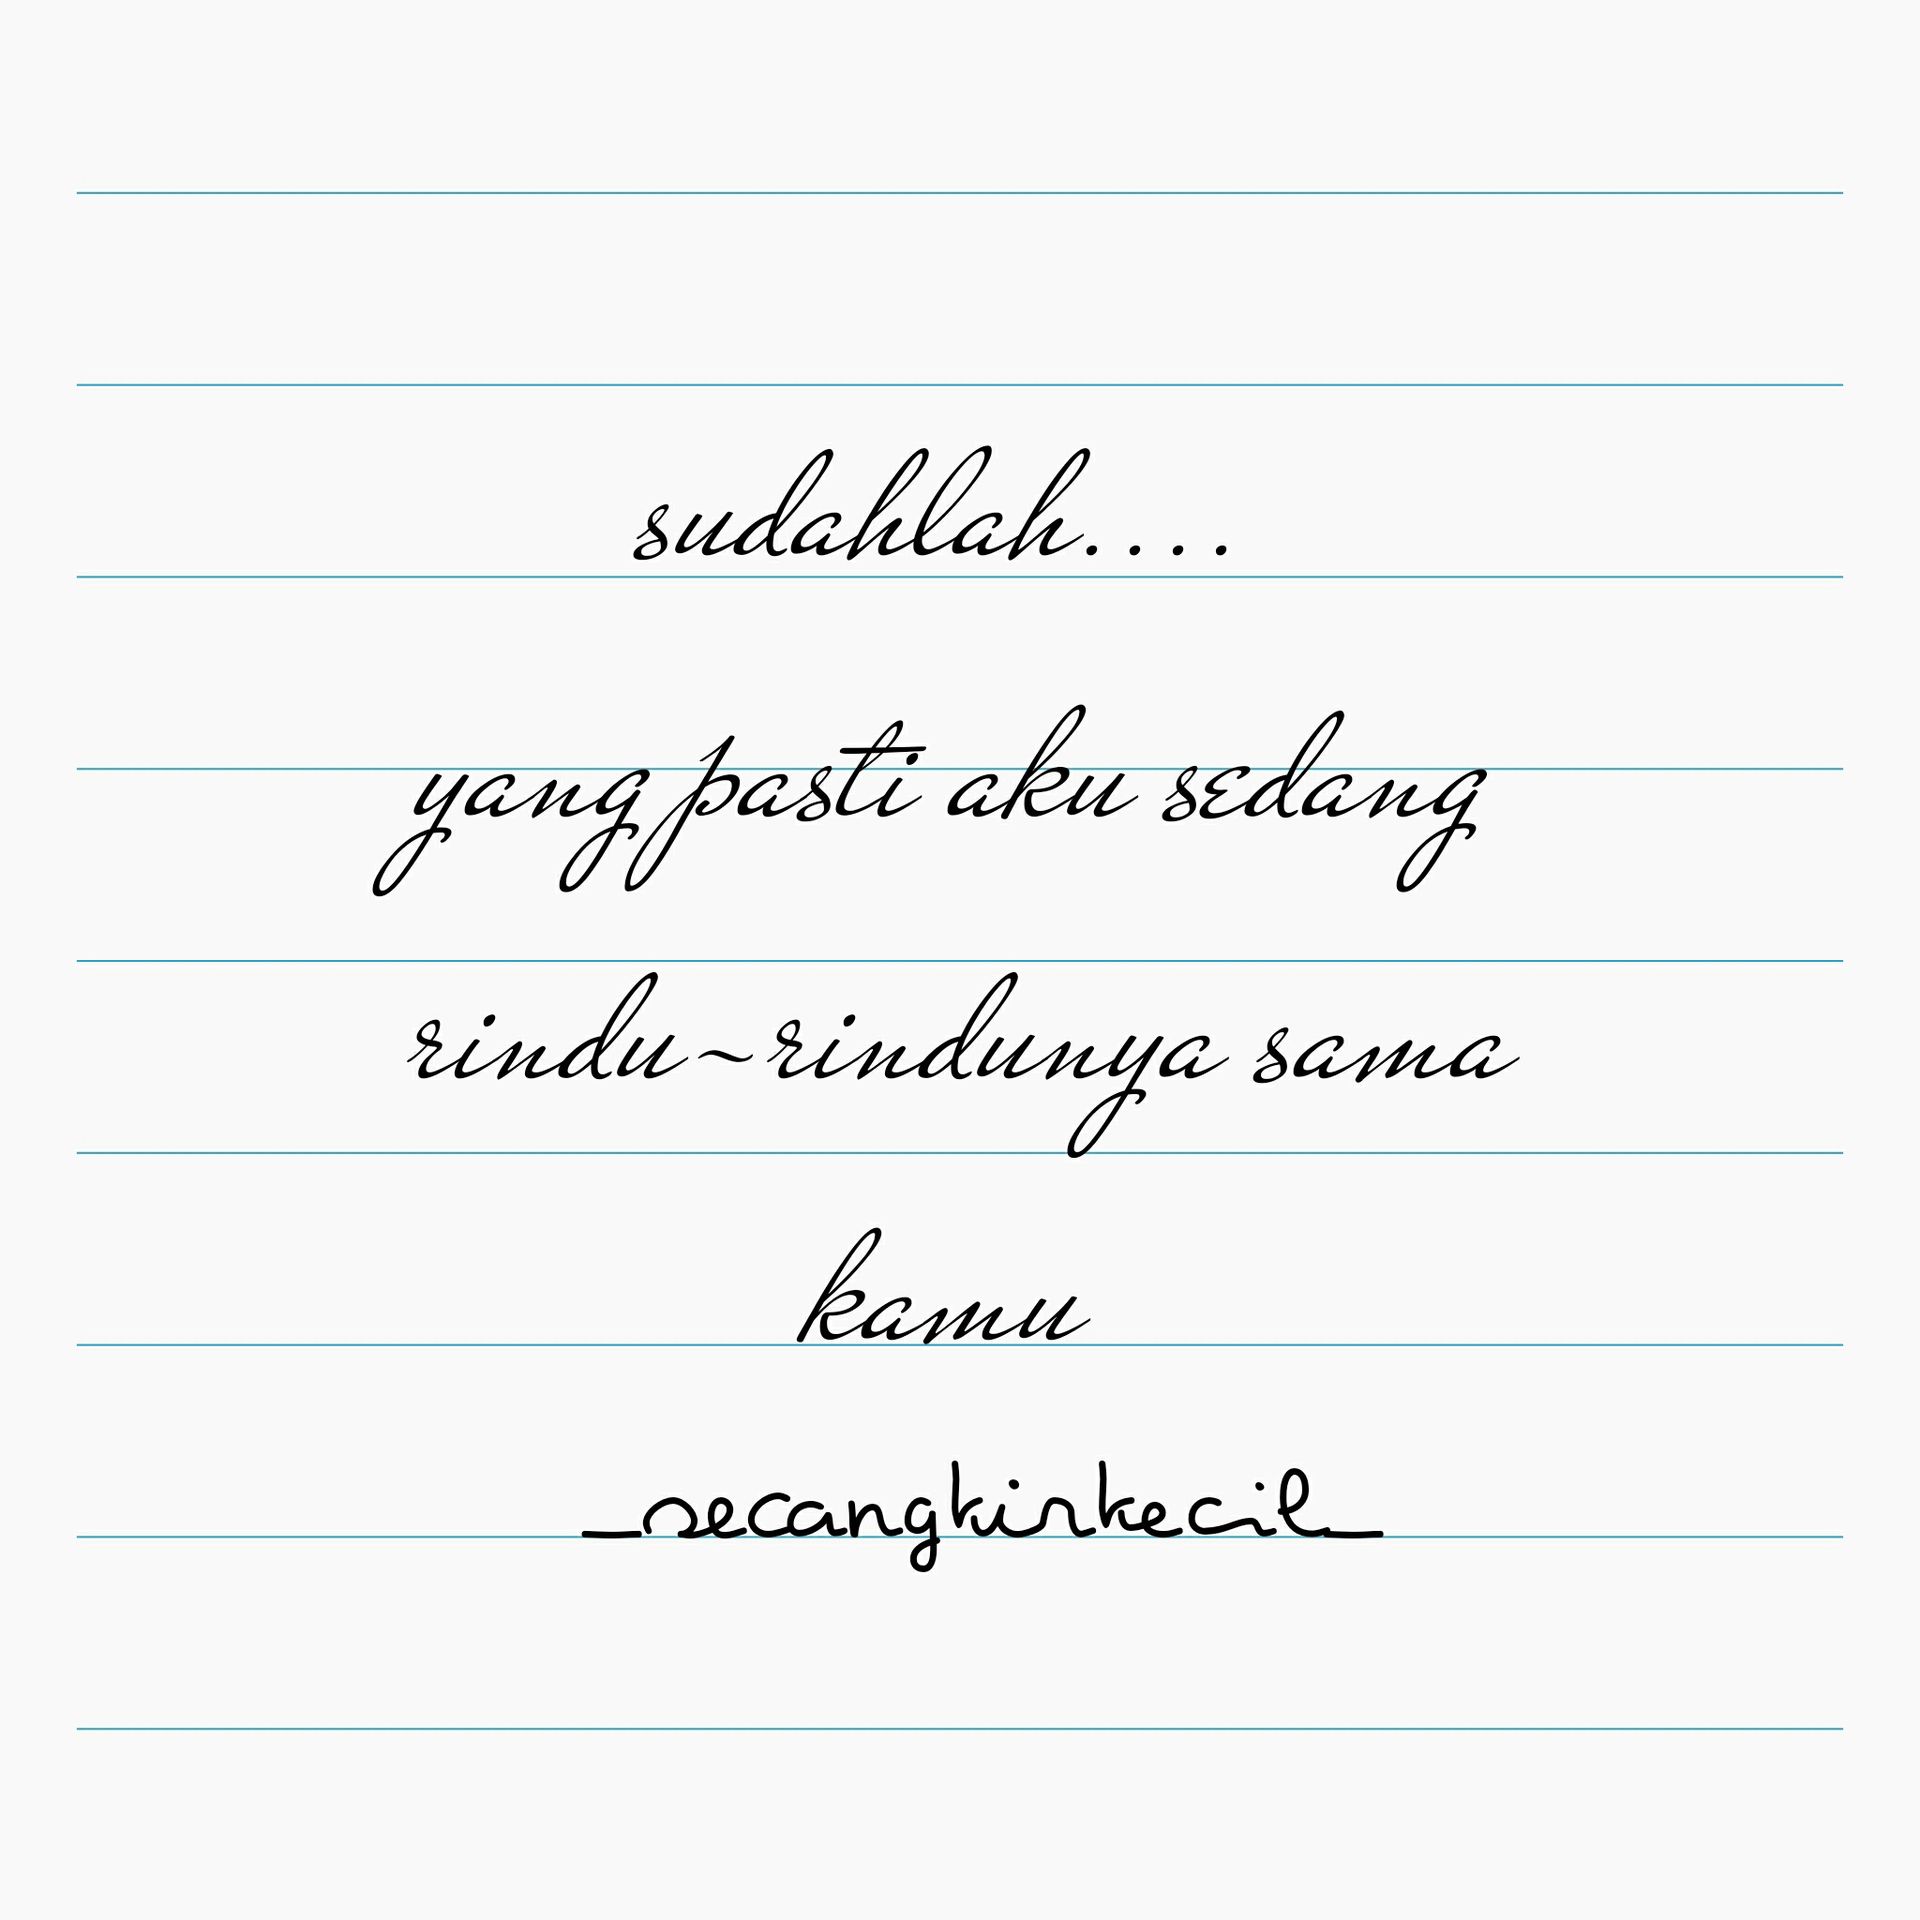 sudahlah....
yang pasti aku sedang
rindu~rindunya sama
kamu
_secangkirkecil_